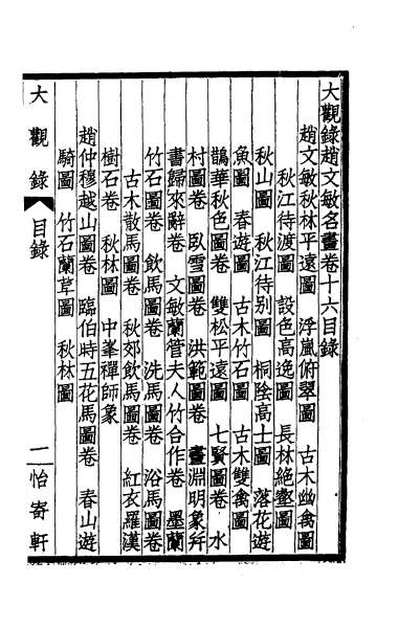 大觀錄趙文敏名畫卷十六目錄
趙文敏秋林平遠圖 浮嵐俯翠圖 古木幽禽圖
秋江待渡圖 設色高逸圖 長林絶壑圖
秋山圖 秋江待別圖 桐陰高士圖 落花遊
魚圖 春遊圖 古木竹石圖 古木雙禽圖
鵲華秋色圖卷 雙松平遠圖 七賢圖卷 水
村圖卷 臥雪圖卷 洪範圖卷 畫淵明象幷
書歸來辭卷 文敏蘭管夫人竹合作卷 墨蘭
竹石圖卷 飲馬圖卷 洗馬圖卷 浴馬圖卷
古木散馬圖卷 秋郊飲馬圖卷 紅衣羅漢
樹石卷 秋林圖 中峯禪師象
趙仲穆越山圖卷 臨伯時五花馬圖卷 春山遊
騎圖 竹石蘭草圖 秋林圖
大觀錄 目錄 二 怡寄軒